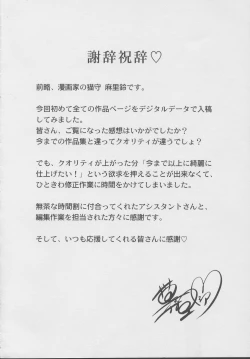 謝辞祝辞♡
前略、漫画家の猫守 麻里鈴です。
今回初めて全ての作品ページをデジタルデータで入稿
してみました。
皆さん、ご覧になった感想はいかがでしたか？
今までの作品集と違ってクオリティが違うでしょ？
でも、クオリティが上がった分「今まで以上に綺麗に
仕上げたい！」という欲求を押えることが出来なくて、
ひときわ修正作業に時間をかけてしまいました。
無茶な時間割に付合ってくれたアシスタントさんと、
編集作業を担当された方々に感謝です。
そして、いつも応援してくれる皆さんに感謝♡